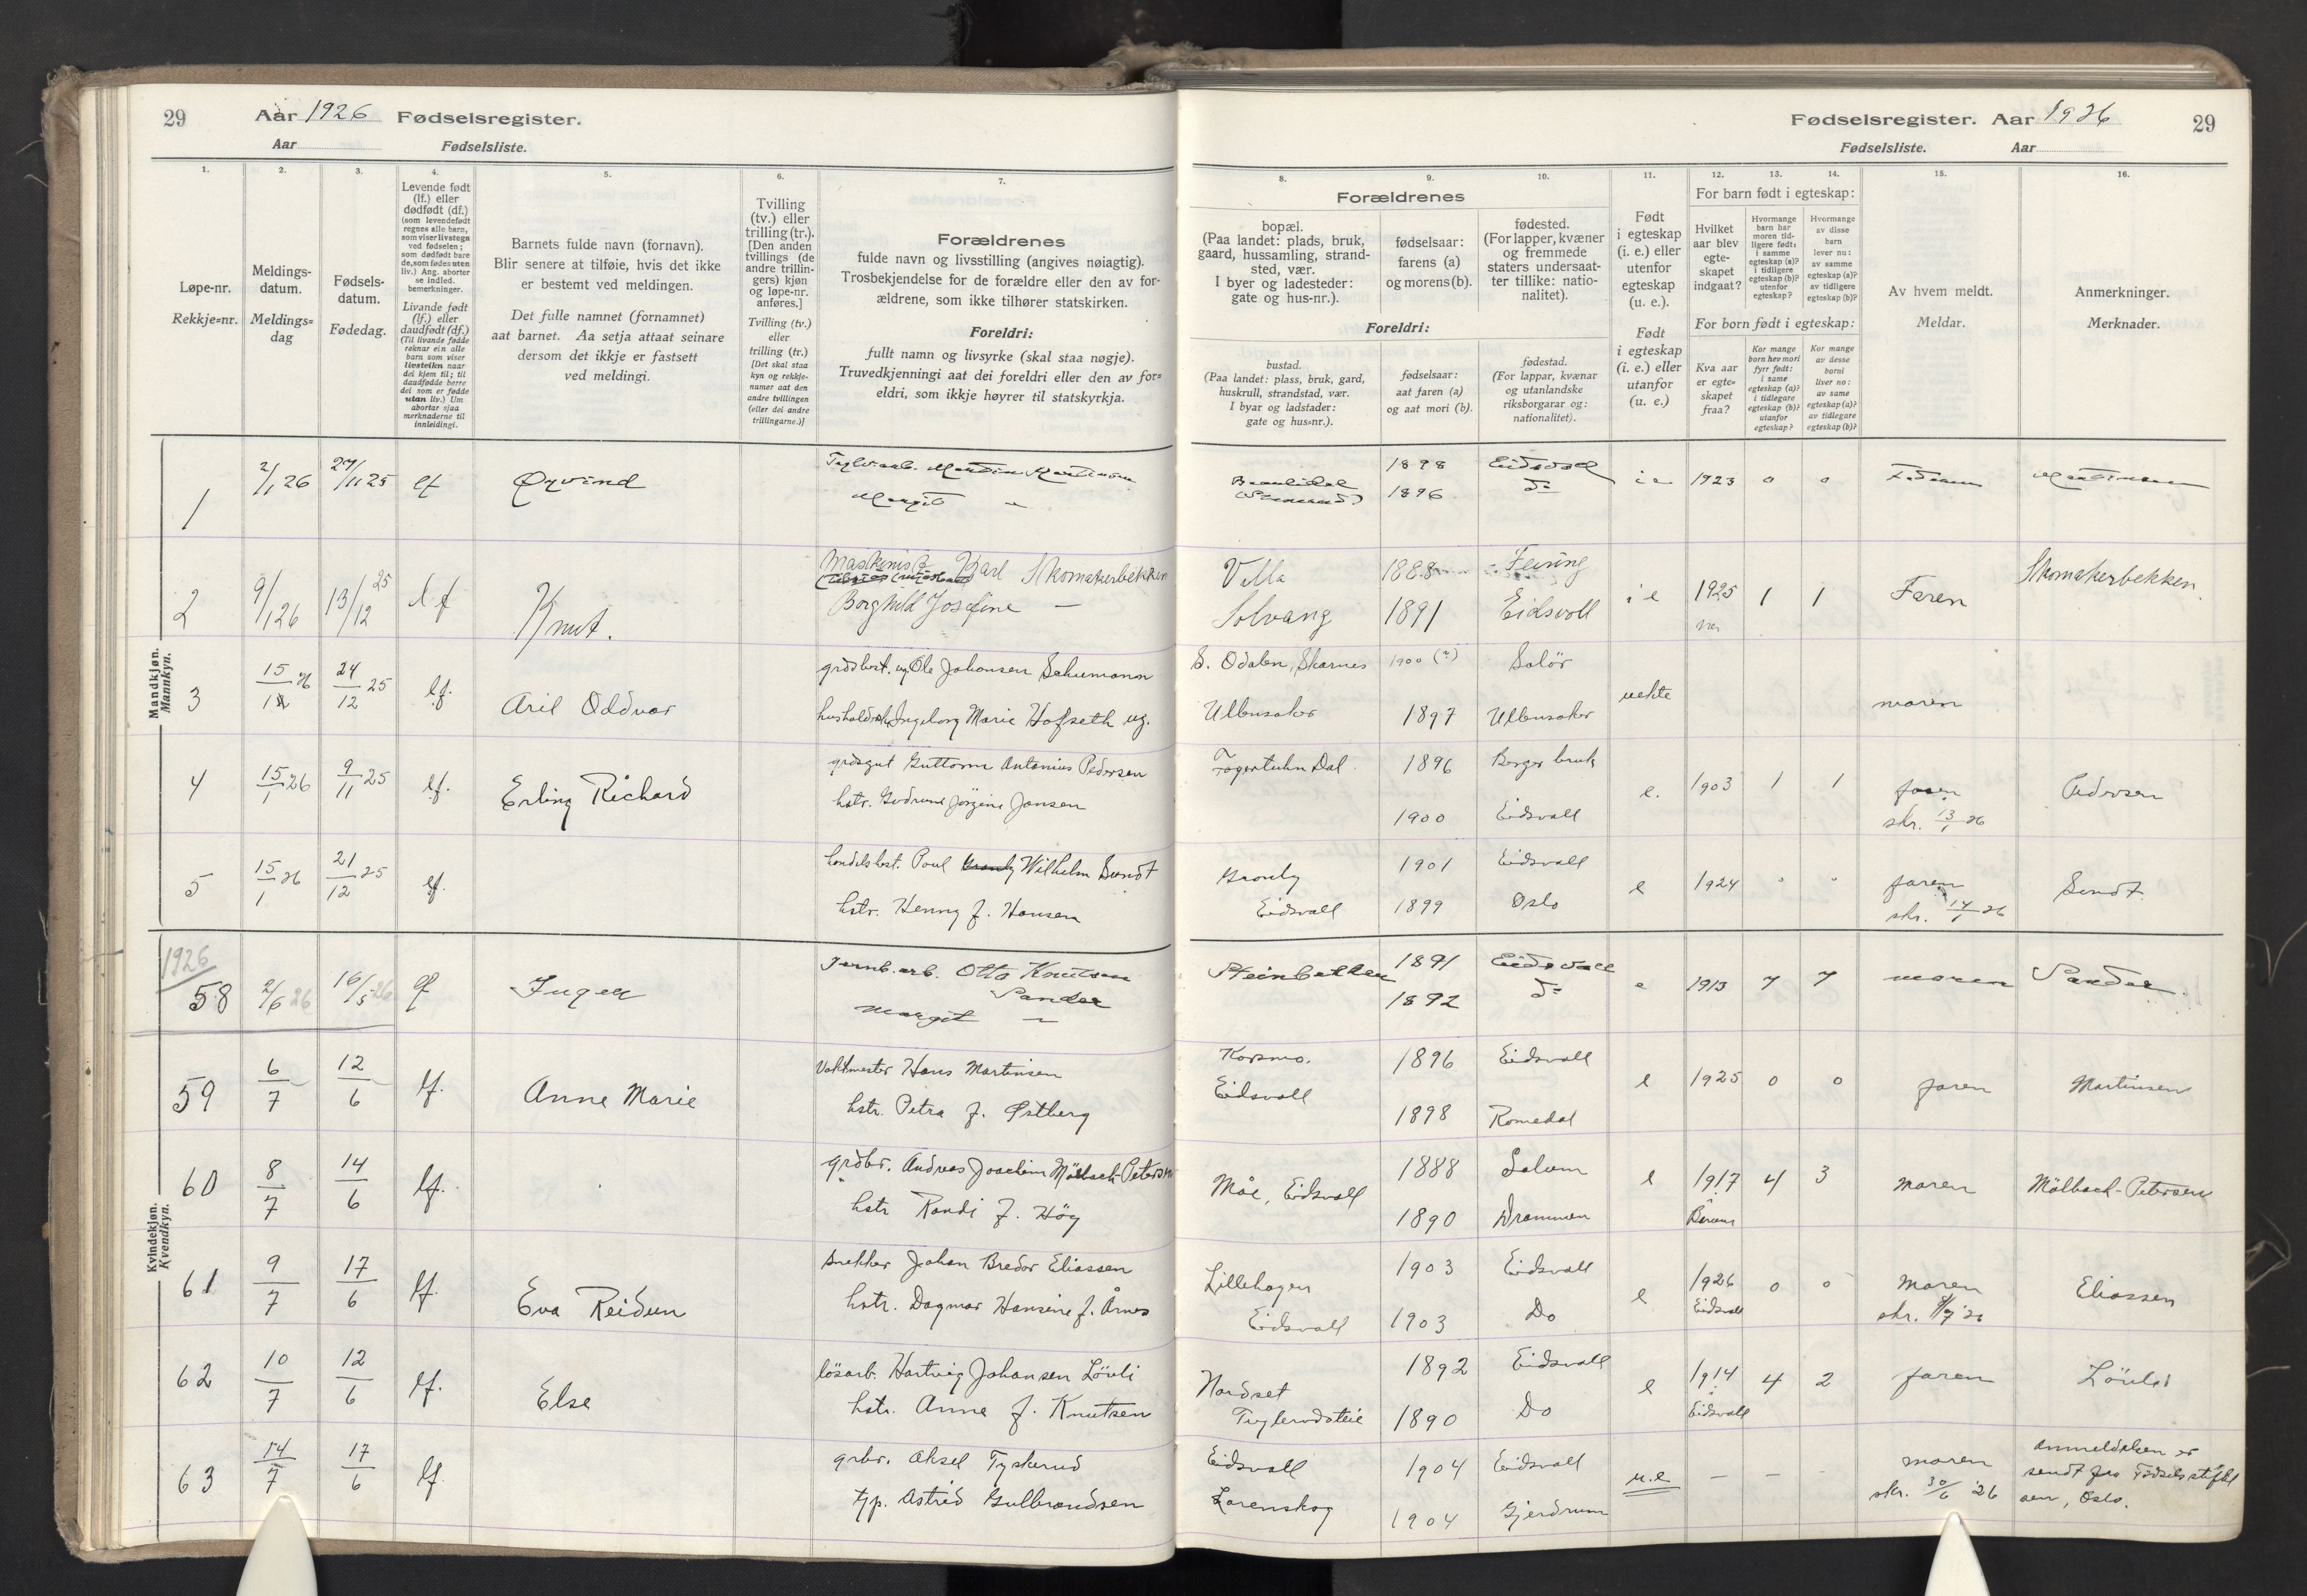 29
Aar 1926 Fødselsregister.
Aar Fødselsliste.
1.
2.
3.
4.
5.
6.
7.
Løpe-nr.
Rekkje=nr.
Meldings-
datum.
Meldings=
dag
Fødsels-
datum.
Fødedag.
Levende født
(lf.) eller
dødfødt (df.)
(som levendefødt
regnes alle barn,
som viser livstegn
ved fødselen;
som dødfødt bare
de, som fødes uten
liv.) Ang. aborter
se indled.
bemerkninger.
Livande født
(lf.) eller
daudfødt (df.)
(Til livande fødde
reknar ein alle
barn som viser
livsteikn naar
dei kjem til; til
daudfødde berre
dei som er fødde
utan liv.) Um
abortar sjaa
merknaderne til
innleidingi.
Barnets fulde navn (fornavn).
Blir senere at tilføie, hvis det ikke
er bestemt ved meldingen.
Det fulle namnet (fornamnet)
aat barnet. Aa setja attaat seinare
dersom det ikkje er fastsett
ved meldingi.
Tvilling
(tv.) eller
trilling (tr.).
[Den anden
tvillings (de
andre trillin-
gers) kjøn
og løpe-nr.
anføres.]
Tvilling (tv.)
eller
trilling (tr.)
[Det skal staa
kyn og rekkje-
numer aat den
andre tvillingen
(eller dei andre
trillingarne.)]
Forældrenes
fulde navn og livsstilling (angives nøiagtig).
Trosbekjendelse for de forældre eller den av for-
ældrene, som ikke tilhører statskirken.
Foreldri:
fullt namn og livsyrke (skal staa nøgje).
Truvedkjenningi aat dei foreldri eller den av for=
eldri, som ikkje høyrer til statskyrkja.
Mandkjøn.
Mannkyn.
1 2/1 26 27/11 25 lf Øyvind
Margit "
2 9/1 26 13/12 25 lf Knut.
Maskinist Karl Skomakerbekken
Borghild Josefine —
3 15/1 26 24/12 25 lf. Aril Oddvar
grdbest. ug Ole Johansen Schumann
Ingeborg Marie Hofseth ug.
4 15/1 26 9/11 25 lf. Erling Richard
grdsgut Guttorm Antonius Pedersen
hstr. Gudrune Jörgine Jansen
5 15/1 26 21/12 25 lf.
handelsbest. Poul Wilhelm Sundt
hstr. Henny f. Hansen
Kvindekjøn.
Kvendkyn.
1926
58 2/6 26 16/5 26 lf Inger
Jernb.arb. Otto Knutsen
Sander
Margit —
59 6/7 12/6 lf. Anne Marie
Vaktmester Hans Martinsen
hstr. Petra f. Østberg
60 8/7 14/6 lf.
grdbr. Andreas Joachim Mölbach-Petersen
hstr Randi f. Høg
61 9/7 17/6 lf. Eva Reidun
snekker Johan Bredor Eliassen
hstr. Dagmar Hansine f. Årnes
62 10/7 12/6 lf. Else
løsarb. Hartvig Johansen Lövli
hstr. Anna f. Knutsen
63 14/7 17/6 lf
grbr. Aksel Tyskerud
tjp. Astrid Gulbrandsen
Fødselsregister. Aar 1926
29
Fødselsliste. Aar
8.
9.
10.
11.
12.
13.
14.
15.
16.
Forældrenes
bopæl.
(Paa landet: plads, bruk,
gaard, hussamling, strand-
sted, vær.
I byer og ladesteder:
gate og hus-nr.).
fødselsaar:
farens (a)
og morens (b).
fødested.
(For lapper, kvæner
og fremmede
staters undersaat-
ter tillike: natio-
nalitet).
Foreldri:
bustad.
(Paa landet: plass, bruk, gard,
huskrull, strandstad, vær.
I byar og ladstader:
gate og hus=nr.).
fødselsaar:
aat faren (a)
og aat mori (b).
fødestad.
(For lappar, kvænar
og utanlandske
riksborgarar og:
nationalitet).
Født
i egteskap
(i. e.) eller
utenfor
egteskap
(u. e.).
Født
i egteskap
(i. e.) eller
utanfor
(u. e.)
For barn født i egteskap:
Hvilket
aar blev
egte-
skapet
indgaat?
Hvormange
barn har
moren tid-
ligere født:
i samme
egteskap (a)?
i tidligere
egteskap (b)?
utenfor
egteskap?
Hvormange
av disse
barn
lever nu:
av samme
egteskap (a)?
av tidligere
egteskap (b)?
For born født i egteskap:
Kva aar
er egte=
skapet
fraa?
Kor mange
born hev mori
fyrr født:
i same
egteskap (a)?
i tidlegare
egteskap (b)?
utanfor
egteskap?
Kor mange
av desse
borni
liver no:
av same
egteskap (a)?
av tidlegare
egteskap (b)?
Av hvem meldt.
Meldar.
Anmerkninger.
Merknader.
1898 Eidsvol
1896 do i e 1923 0 0
Villa 1888 Feiring Skomakerbekken.
Solvang 1891 Eidsvoll i e 1925 1 1 Faren
S. Odalen, Skarnes 1900 (?) Solør
Ullensaker 1897 Ullensaker uekte moren
Dal 1896 Berger bruk
e. 1903 1 1 faren Pedersen
1900 Eidsvall skr. 13/1 26
1901 Eidsvall
e 1924 " " faren Sundt
Eidsvall 1899 Oslo skr. 14/1 26
Steinbekken 1891 Eidsvall
1892 do e 1913 7 7 moren Sander.
Korsmo. 1896 Eidsvall
Eidsvall e 1925 0 0 faren Martinsen
1898 Romedal
Måe, Eidsvall 1888 Solum
e 1917 4 3 moren Mölbach-Petersen
1890 Drammen Bærum
Lillehagen 1903 Eidsvall
e 1926 0 0 moren Eliassen
Eidsvall 1903 Do Eidsvall
Nordset 1892 Eidsvall
e 1914 4 2 faren Lövli
1890 Do Eidsvall
Eidsvall 1904 Eidsvall u.e — — — moren
Lørenskog 1904 Gjerdrum skr. 30/6 26
Anmeldelsen er
sendt fra Fødselsstiftel
sen, Oslo.